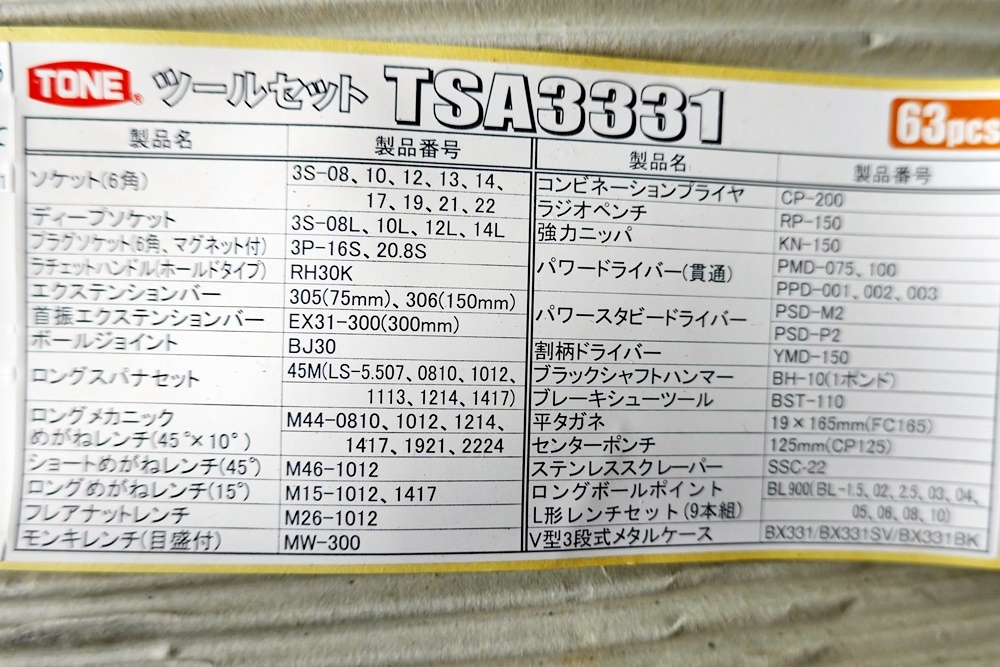 TONE® ツールセット TSA3331 63pcs
製品名 製品番号
ソケット(6角) 3S-08、10、12、13、14、
17、19、21、22
ディープソケット 3S-08L、10L、12L、14L
プラグソケット(6角、マグネット付) 3P-16S、20.8S
ラチェットハンドル(ホールドタイプ) RH30K
エクステンションバー 305(75mm)、306(150mm)
首振エクステンションバー EX31-300(300mm)
ボールジョイント BJ30
ロングスパナセット 45M(LS-5.507、0810、1012、
1113、1214、1417)
ロングメカニック M44-0810、1012、1214、
めがねレンチ(45°×10°) 1417、1921、2224
ショートめがねレンチ(45°) M46-1012
ロングめがねレンチ(15°) M15-1012、1417
フレアナットレンチ M26-1012
モンキレンチ(目盛付) MW-300
製品名 製品番号
コンビネーションプライヤ CP-200
ラジオペンチ RP-150
強力ニッパ KN-150
パワードライバー(貫通) PMD-075、100
PPD-001、002、003
パワースタビードライバー PSD-M2
PSD-P2
割柄ドライバー YMD-150
ブラックシャフトハンマー BH-10(1ポンド)
ブレーキシューツール BST-110
平タガネ 19×165mm(FC165)
センターポンチ 125mm(CP125)
ステンレススクレーパー SSC-22
ロングボールポイント BL900(BL-1.5、02、2.5、03、04、
L形レンチセット(9本組) 05、06、08、10)
V型3段式メタルケース BX331/BX331SV/BX331BK